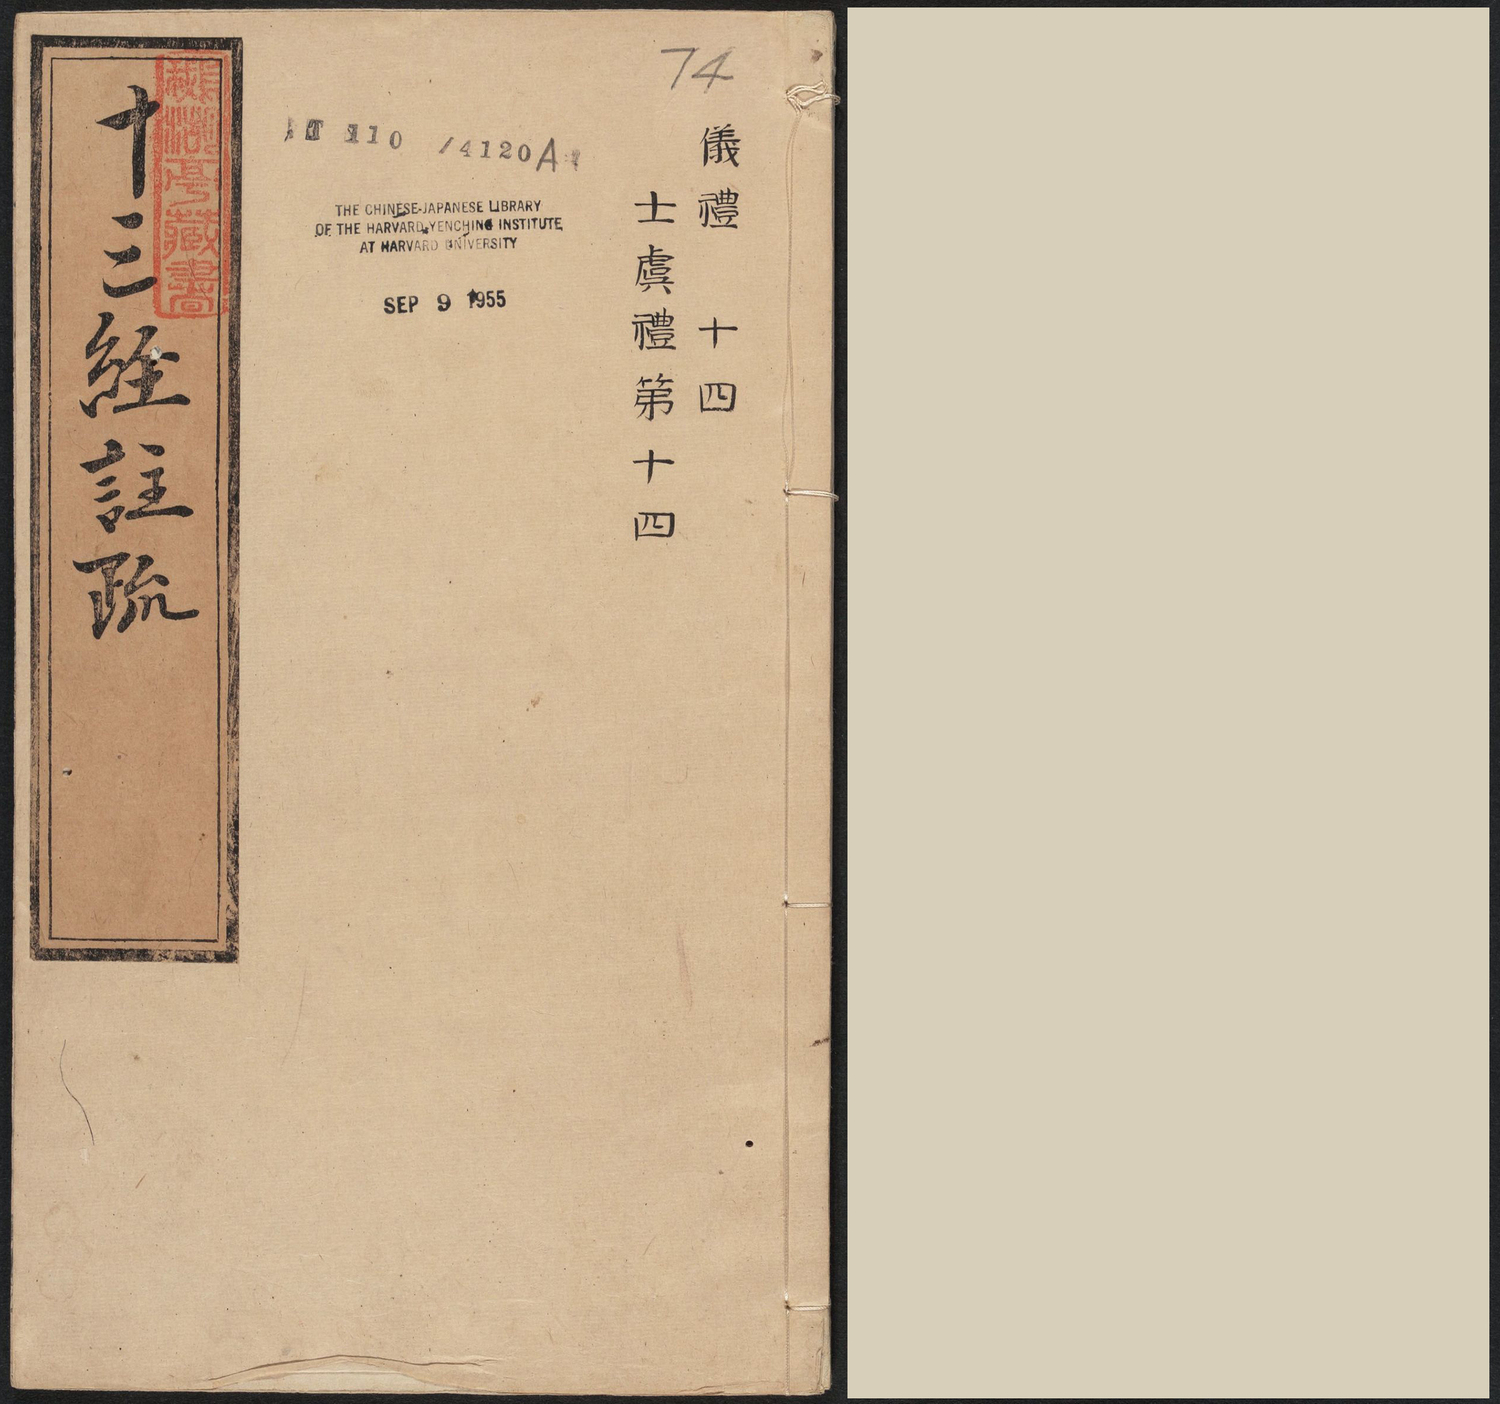 74
儀禮 十四
士虞禮第十四
T 110 /4120A
THE CHINESE-JAPANESE LIBRARY
OF THE HARVARD-YENCHING INSTITUTE
AT HARVARD UNIVERSITY
SEP 9 1955
十三經註疏
亭藏書